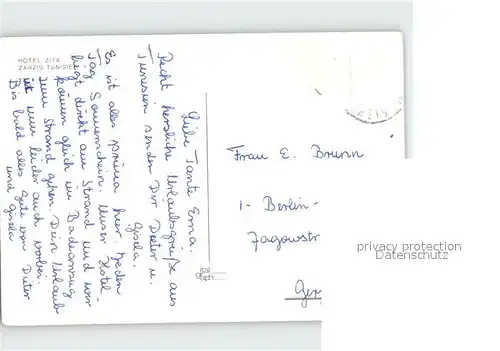 HOTEL ZITA
ZARZIS TUNISIE
Liebe Tante Erna.
Recht herzliche Urlaubsgrüße aus
Tunesien senden Dir Dieter u.
Gisela.
Es ist alles prima hier. Jeden
Tag Sonnenschein. Unser Hotel
liegt direkt am Strand und wir
können gleich im Badeanzug
zum Strand gehen. Der Urlaub
ist nun leider auch vorbei.
Bis bald alles gute von Dieter
und Gisela
Frau E. Brunn
1 - Berlin -
Jagowstr
Ger
privacy protection
Datenschutz